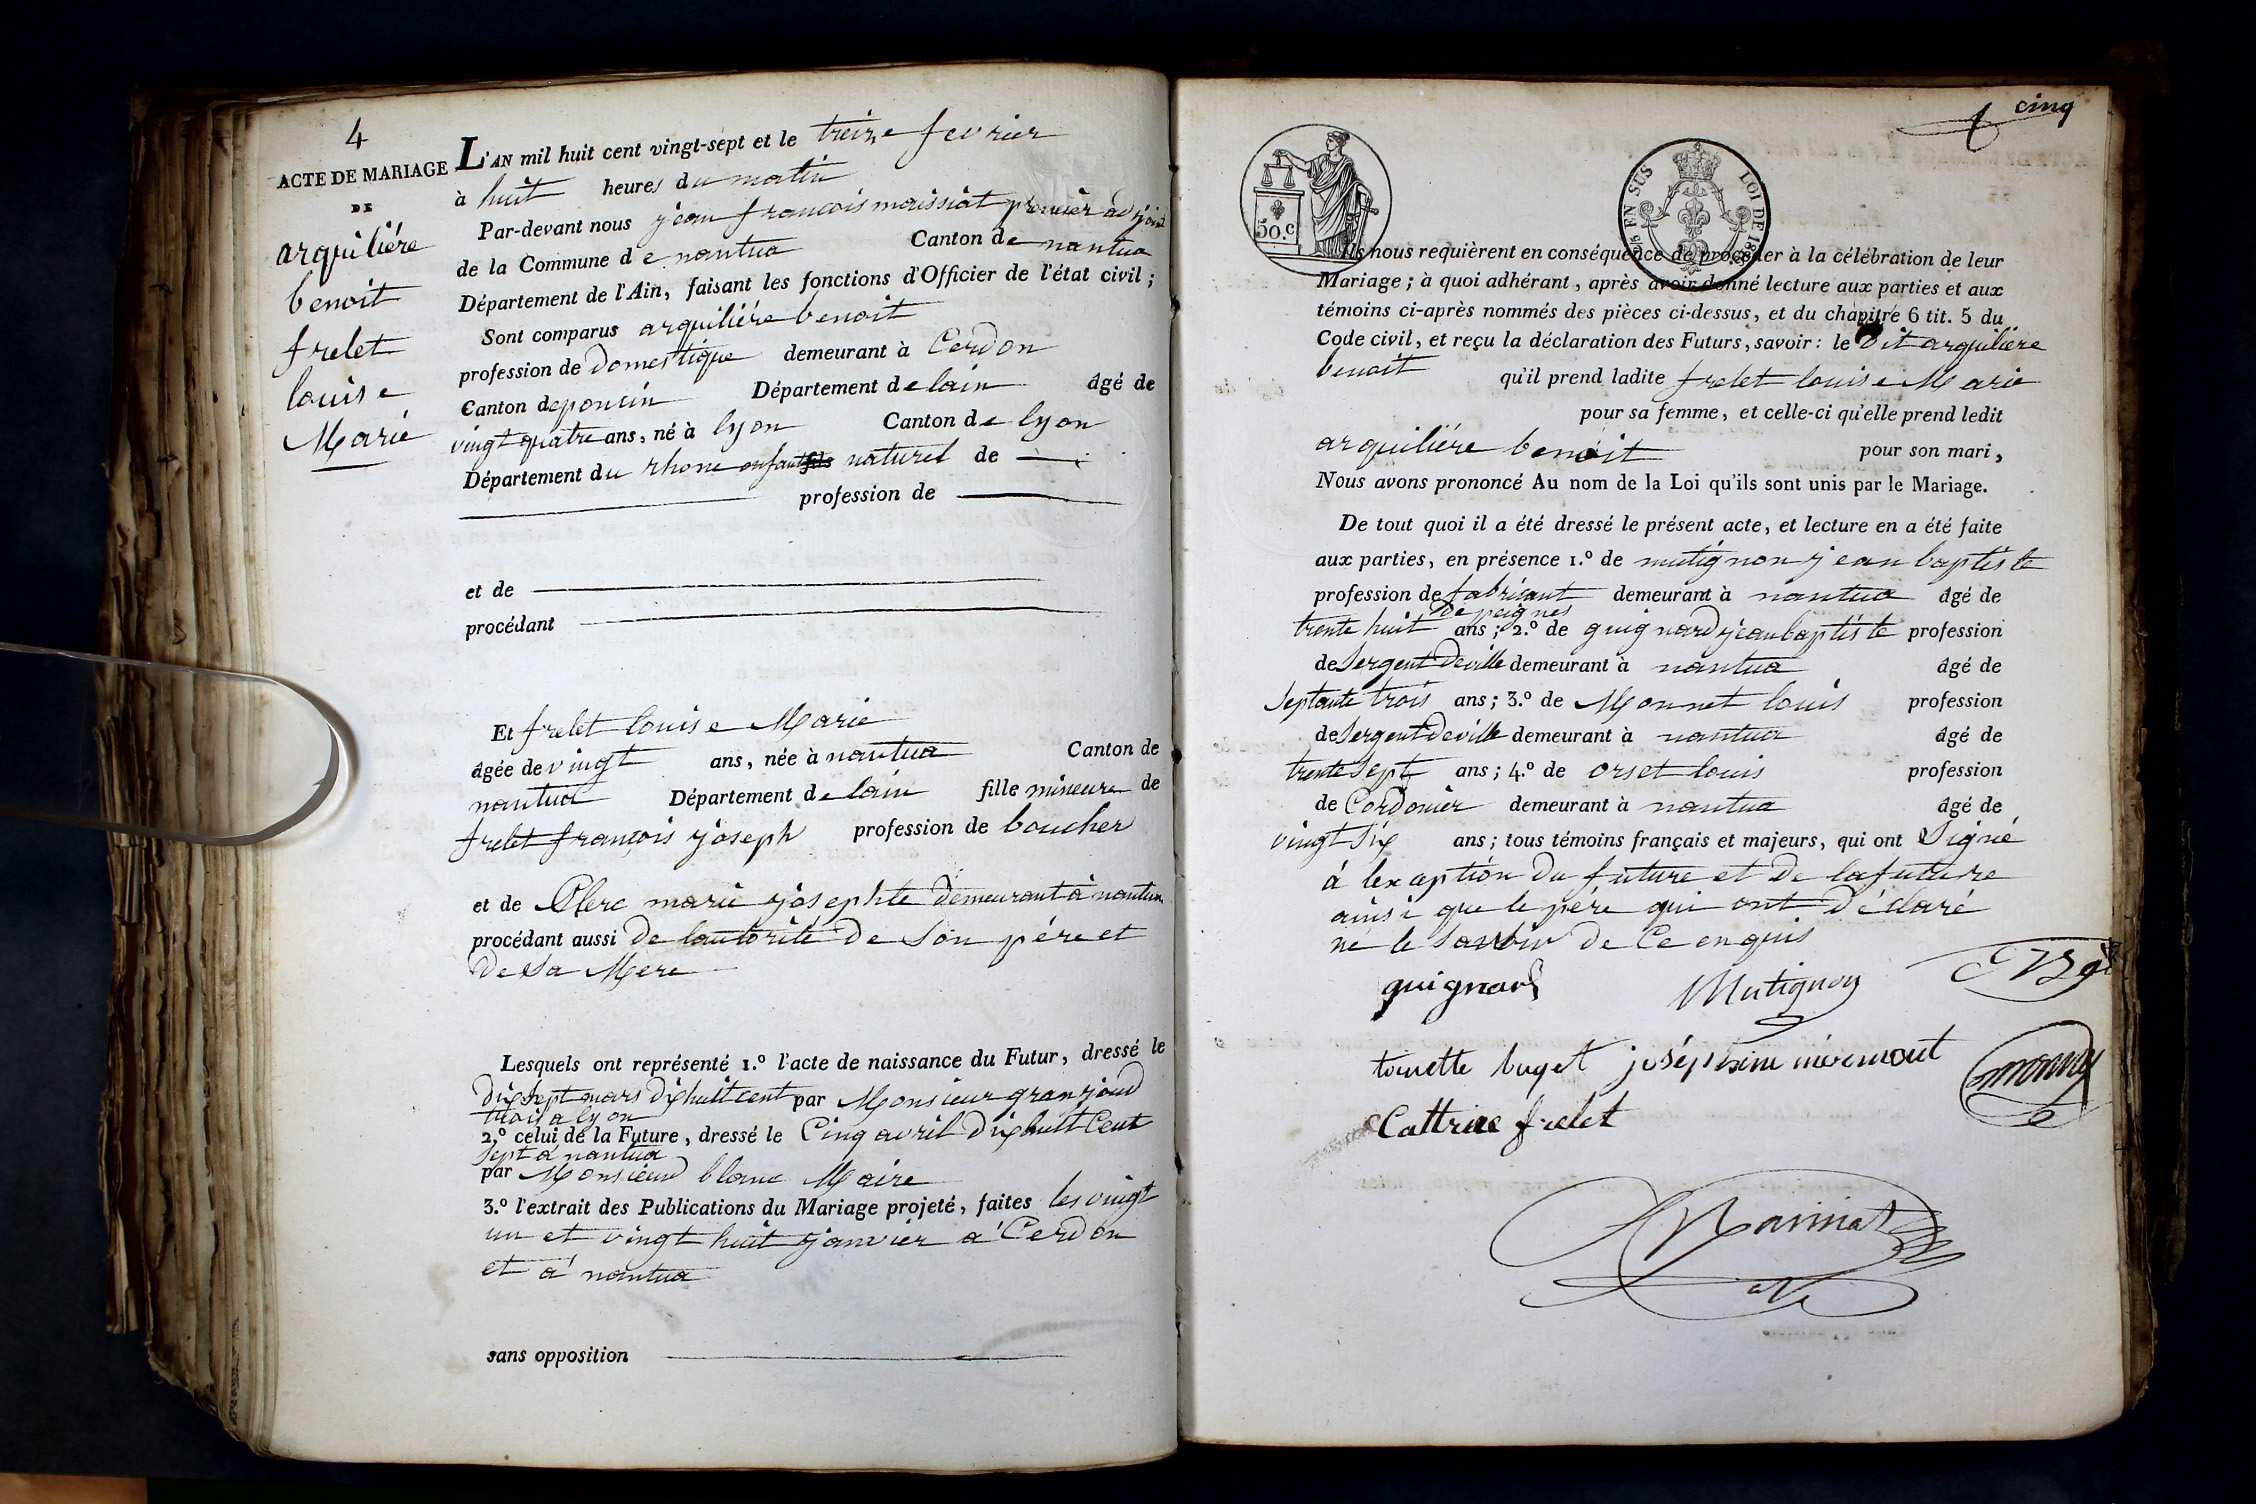 4
ACTE DE MARIAGE
DE
arquiliére
benoit
frelet
louise
Marie
L'AN mil huit cent vingt-sept et le treize fevrier
à huit heures du matin
Par-devant nous jean francois maissiat premier adjoint
de la Commune de nantua Canton de nantua
Département de l'Ain, faisant les fonctions d'Officier de l'état civil;
Sont comparus arquiliére benoit
profession de domestique demeurant à Cerdon
Canton de poncin Département de lain âgé de
vingt quatre ans, né à lyon Canton de lyon
Département du rhone enfant fils naturel de
profession de
et de
procédant
Et frelet louise Marie
âgée de vingt ans, née à nantua Canton de
nantua Département de lain fille mineure de
frelet françois joseph profession de boucher
et de Clerc marie josephte demeurant à nantua
procédant aussi de lautorité de son pére et
de sa Mere
Lesquels ont représenté 1.º l'acte de naissance du Futur, dressé le
dix sept mars dix huit cent par Monsieur
trois a lyon
2.º celui de la Future, dressé le Cinq avril dix huit Cent
sept á nantua
par Monsieur blanc Maire
3.º l'extrait des Publications du Mariage projeté, faites les vingt
un et vingt huit janvier a Cerdon
et a nantua
sans opposition
cinq
50.c
25 EN SUS LOI DE
Ils nous requièrent en conséquence de procéder à la célébration de leur
Mariage; à quoi adhérant, après avoir donné lecture aux parties et aux
témoins ci-après nommés des pièces ci-dessus, et du chapitre 6 tit. 5 du
Code civil, et reçu la déclaration des Futurs, savoir: le dit arquiliere
benoit qu'il prend ladite frelet louise Marie
pour sa femme, et celle-ci qu'elle prend ledit
arquiliére benoit pour son mari,
Nous avons prononcé Au nom de la Loi qu'ils sont unis par le Mariage.
De tout quoi il a été dressé le présent acte, et lecture en a été faite
aux parties, en présence 1.º de mutignon jean baptiste
profession de fabricant demeurant à nantua âgé de
de peignes
trente huit ans; 2.º de guignard jean baptiste profession
de Sergent deville demeurant à nantua âgé de
Septante trois ans; 3.º de Monnet louis profession
de Sergent deville demeurant à nantua âgé de
trente Sept ans; 4.º de orset louis profession
de Cordonier demeurant à nantua âgé de
vingt Six ans; tous témoins français et majeurs, qui ont Signé
á lexeption du future et de lafuture
ainsi que le pére qui ont déclaré
ne le savoir de Ce enquis
guignard Mutignon
buget joséphine
Cattrine frelet